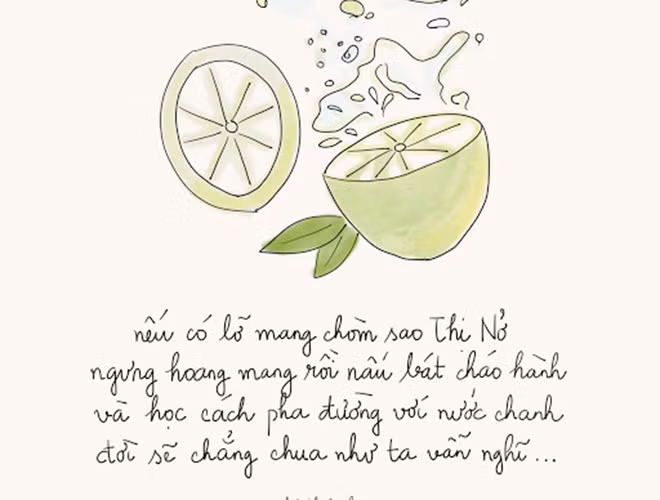 nếu có lỡ mang chòm sao Thị Nở
ngưng hoang mang rồi nấu bát cháo hành
và học cách pha đường với nước chanh
đời sẽ chẳng chua như ta vẫn nghĩ...